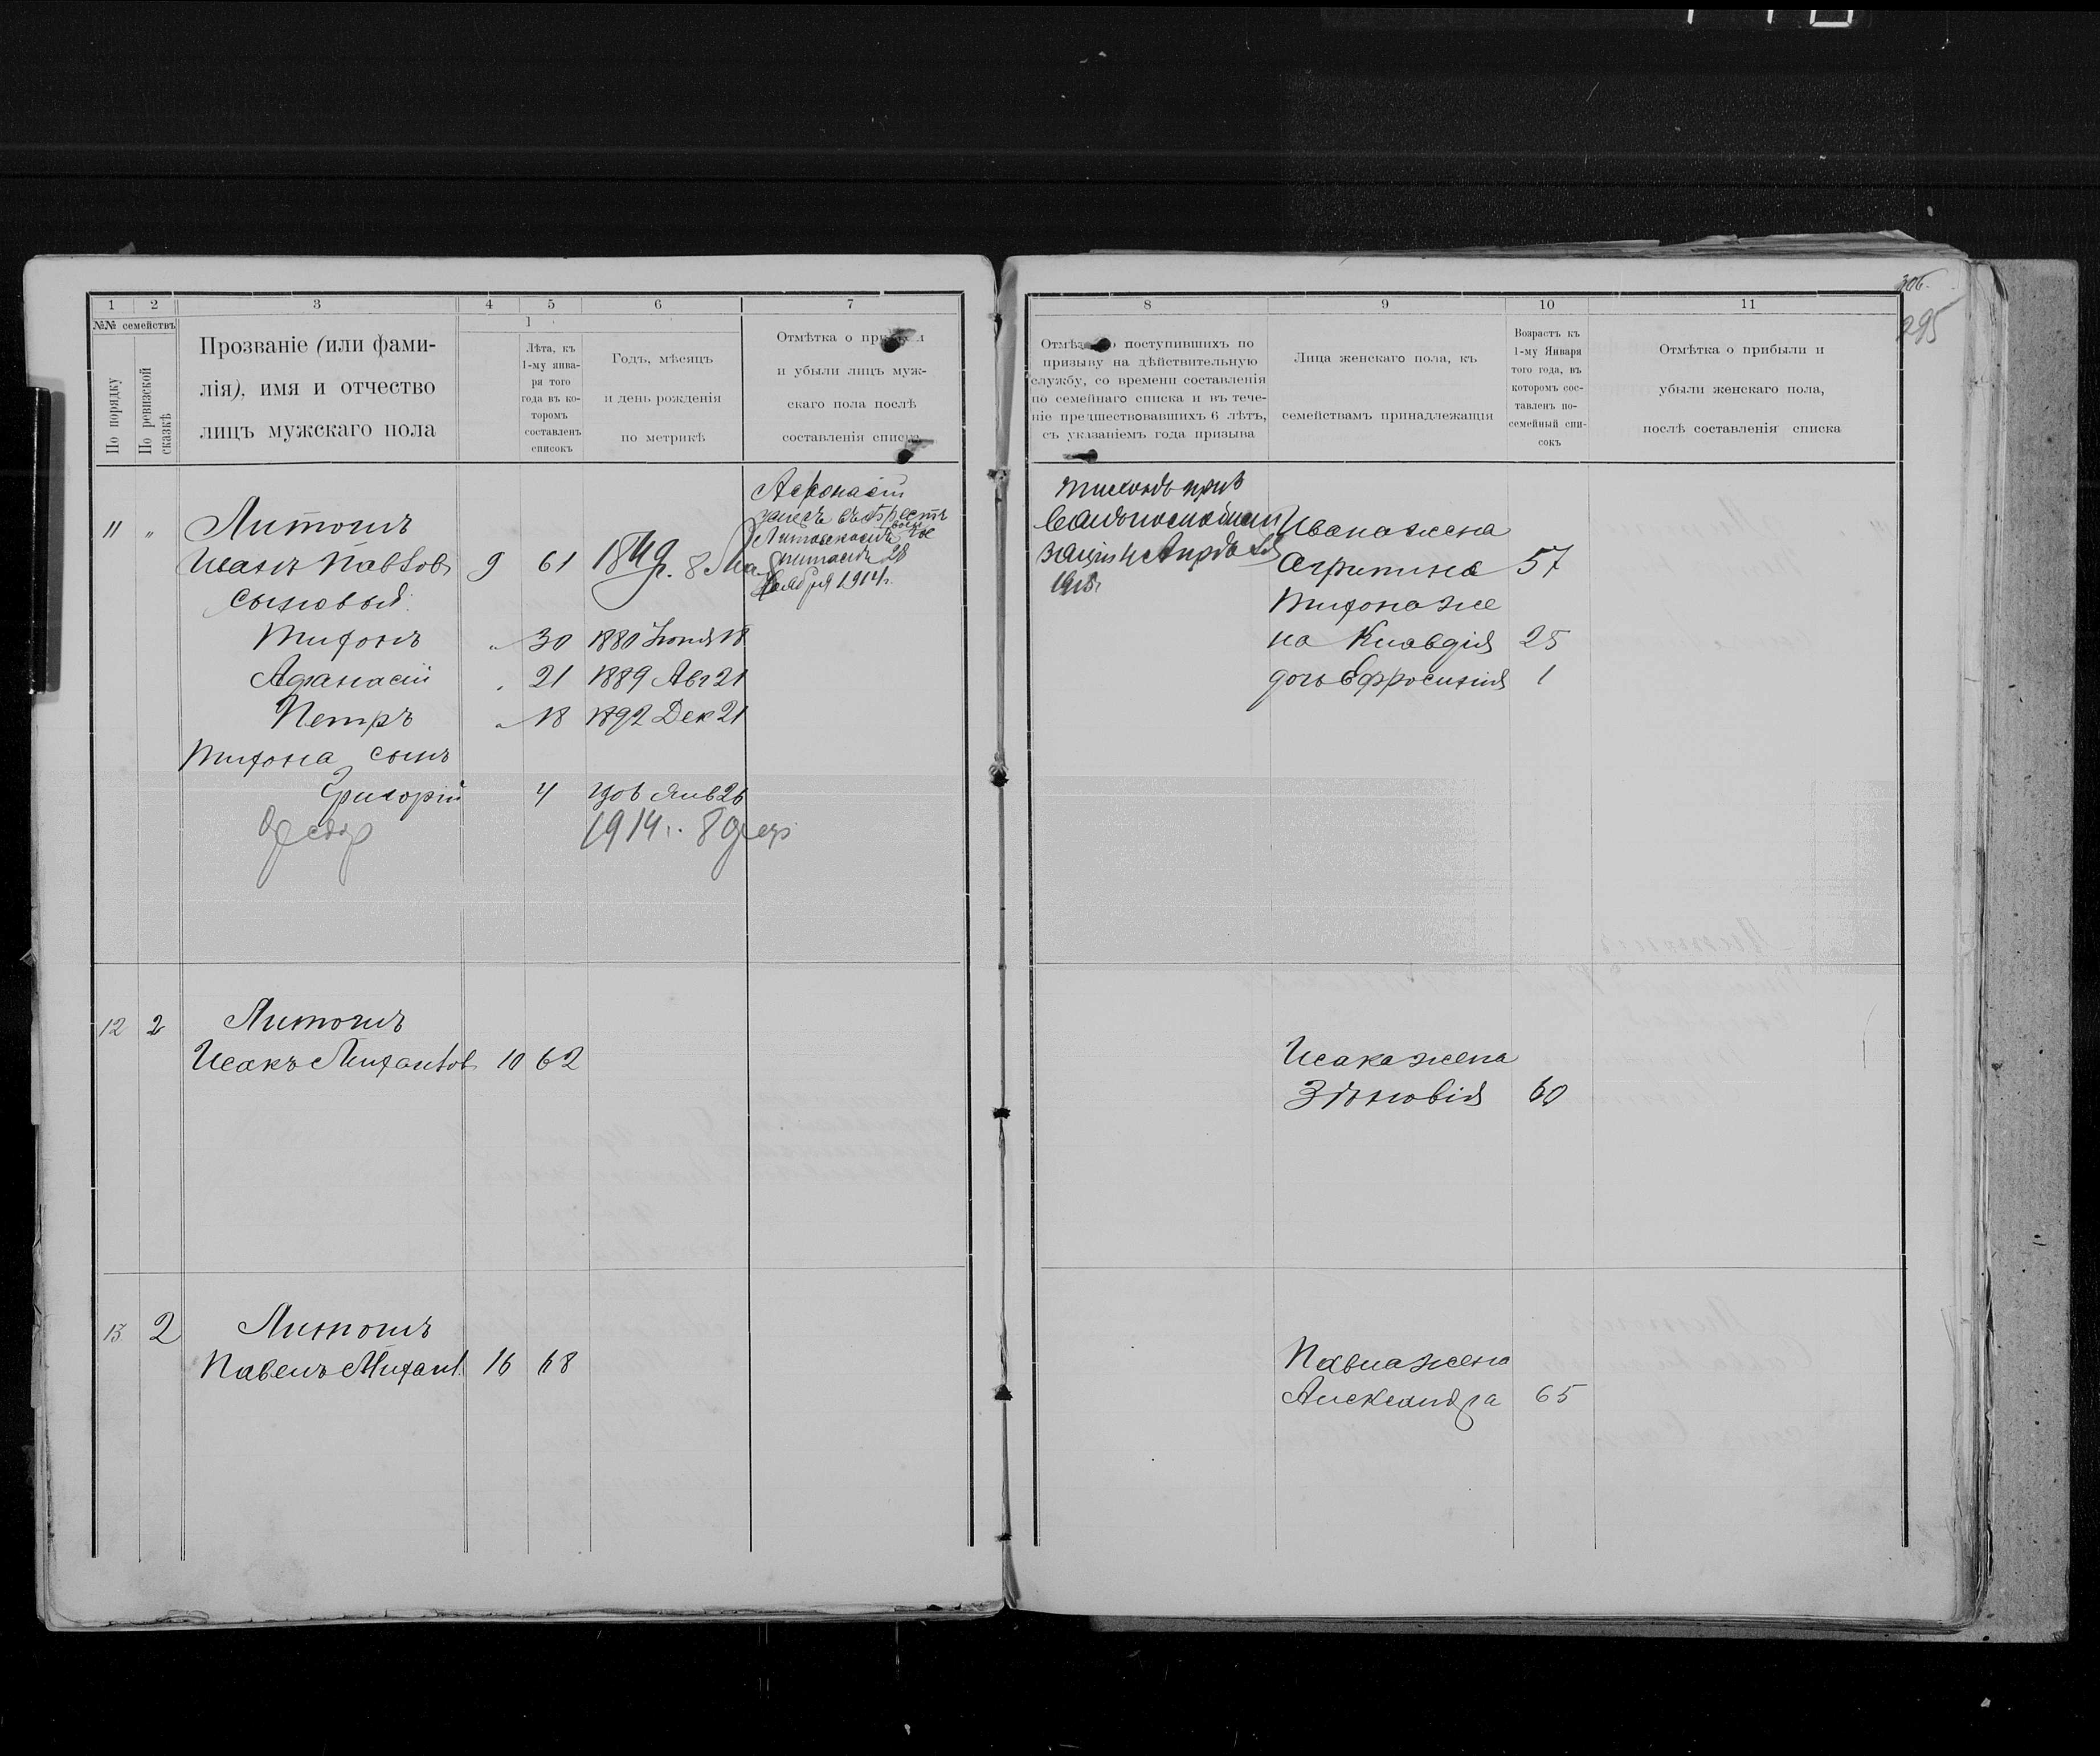 306.
295
1 2 3 4 5 6 7
№№ семействъ
По порядку
По ревизской сказкѣ
Прозваніе (или фами-
лія), имя и отчество
лицъ мужскаго пола
Лѣта, къ
1-му янва-
ря того
года въ ко-
торомъ
составленъ
списокъ
Годъ, мѣсяцъ
и день рожденія
по метрикѣ
Отмѣтка о
и убыли лицъ муж-
скаго пола послѣ
составленія списка
11 " Литогинъ
Иванъ Павлов 9 61 184 г. 8
сыновья
Тихонъ " 30 1880 Іюня 18
Афанасій " 21 1889 Авг 21
Петръ " 18 1892 Дек 21
Тихона сынъ
Григорій 4 1906 Янв 26
Федор 1914 г. 8 февр
Афонасій
28
Ноября 1914 г.
12 2 Литогинъ
Исакъ Михайлов 10 62
13 2 Литогинъ
Павелъ Михайл 16 68
8 9 10 11
поступившихъ по
призыву на дѣйствительную
службу, со времени составленія
по семейнаго списка и въ тече-
ніе предшествовавшихъ 6 лѣтъ,
съ указаніемъ года призыва
Лица женскаго пола, къ
семействамъ принадлежащія
Возрастъ къ
1-му Января
того года, въ
которомъ сос-
тавленъ по-
семейный спи-
сокъ
Отмѣтка о прибыли и
убыли женскаго пола,
послѣ составленія списка
Тихонъ
1915 г.
Ивана жена
Агрипина 57
Тихона же
на Клавдія 25
дочь Ефросинія 1
Исака жена
Зѣновія 60
Павла жена
Александра 65